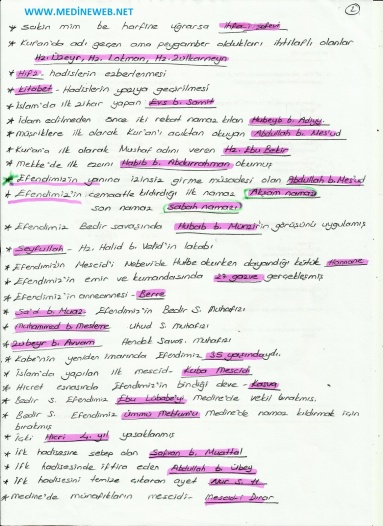 www.MEDINEWEB.NET
L
* Sakin mim be harfine uğrarsa ihfa-i şefevi
* Kuran'da adı geçen ama peygamber oldukları ihtilaflı olanlar
Hz. Üzeyr, Hz. Lokman, Hz. Zülkarneyn
* Hıfz - hadislerin ezberlenmesi
* Kitobet - Hadislerin yazıya geçirilmesi
* İslam'da ilk zıhar yapan Evs b. Samit
* İdam edilmeden önce iki rekat namaz kılan Hubeyb b. Adiyy.
* müşriklere ilk olarak Kur'an'ı açıktan okuyan Abdullah b. Mes'ud
* Kuran'a ilk olarak Mushaf adını veren Hz. Ebu Bekir
* mekke'de ilk ezanı Habib b. Abdurrahman okumuş
* Efendimiz'in yanına izinsiz girme müsadesi olan Abdullah b. Mes'ud
* Efendimiz'in cemaatle kıldırdığı ilk namaz Akşam namazı
son namaz Sabah namazı
* Efendimiz Bedir savaşında Hubab b. Münzir'in görüşünü uygulamış
* Seyfullah - Hz. Halid b. Velid'in lakabı
* Efendimiz'in Mescid'i Nebevi'de Hutbe okurken dayandığı kütük Hannane
* Efendimiz'in emir ve kumandasında 27 gazve gerçekleşmiş
* Efendimiz'in anneannesi - Berre
* Sa'd b. Muaz Efendimiz'in Bedir S. Muhafızı
* Muhammed b. Mesleme Uhud S. muhafızı
* Zübeyr b. Avvam Hendek Savaş. muhafızı
* Kabe'nin yeniden imarında Efendimiz 35 yaşındaydı.
* İslam'da yapılan ilk mescid - Kuba Mescidi
* Hicret esnasında Efendimiz'in bindiği deve - Kasva
* Bedir S. Efendimiz Ebu Lübabe'yi medine'de vekil bırakmış.
* Bedir S. Efendimiz Ümmü Mektum'u medine'de namaz kıldırmak için
bırakmış
* İçki Hicri 4. yıl yasaklanmış
* İfk hadisesine sebep olan Safvan b. Muattal
* İfk hadisesinde iftira eden Abdullah b. Übey
* İfk hadisesini temize çıkaran ayet Nur S. 11
* medine'de münafıkların mescidi - Mescid-i Dırar